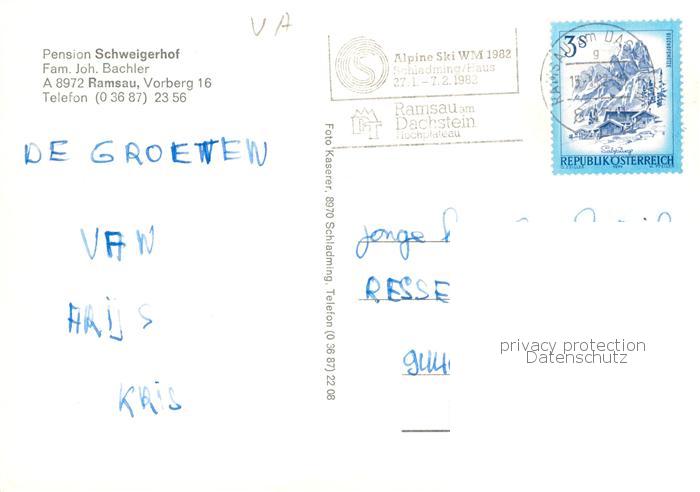 VA
Pension Schweigerhof
Fam. Joh. Bachler
A 8972 Ramsau, Vorberg 16
Telefon (0 36 87) 23 56
Alpine Ski WM 1982
Schladming/Haus
27.1. – 7.2.1982
Ramsau am
Dachstein
Hochplateau
RAMSAU am DACH
3 S
REPUBLIK ÖSTERREICH
DE GROETEN
VAN
ARIJS
KRIS
Foto Kaserer, 8970 Schladming, Telefon (0 36 87) 22 08
jonge
RESSE
privacy protection
Datenschutz